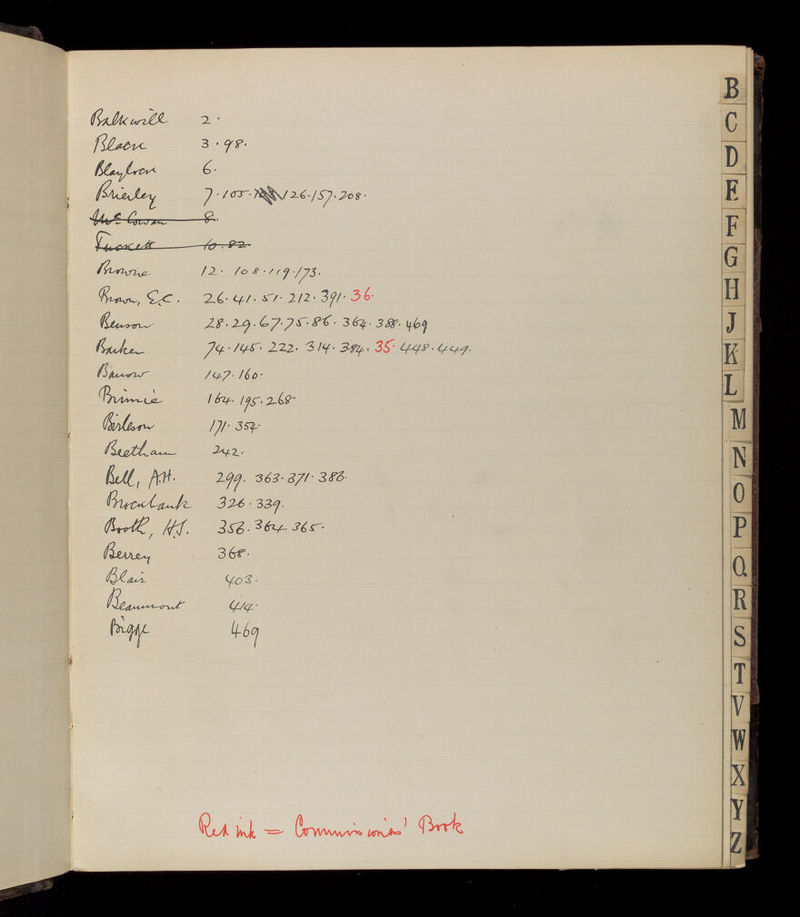 Balkwill 2.
Black 3. 98.
Blaylock 6.
Brierley 7. 105. 126. 157. 208.
McCowan 8.
Tuckett 10. 82
Browne 12. 108. 119. 173.
Brown, E.C. 26. 41. 51. 212. 391. 36.
Benson 28. 29. 67. 75. 86. 364. 388. 469
Barker 74. 145. 222. 314. 384. 35. 448. 449.
Barrow 147. 160.
Binnie 164. 195. 268.
Birleson 171. 354.
Beetham 242.
Bell, A.H. 299. 363. 371. 386.
Brockbank 326. 339.
Booth, H.J. 356. 364. 365.
Berrey 368.
Blair 403.
Beaumont 414.
469
Red ink = Commissioners' Book
B
C
D
E
F
G
H
J
K
L
M
N
O
P
Q
R
S
T
V
W
X
Y
Z